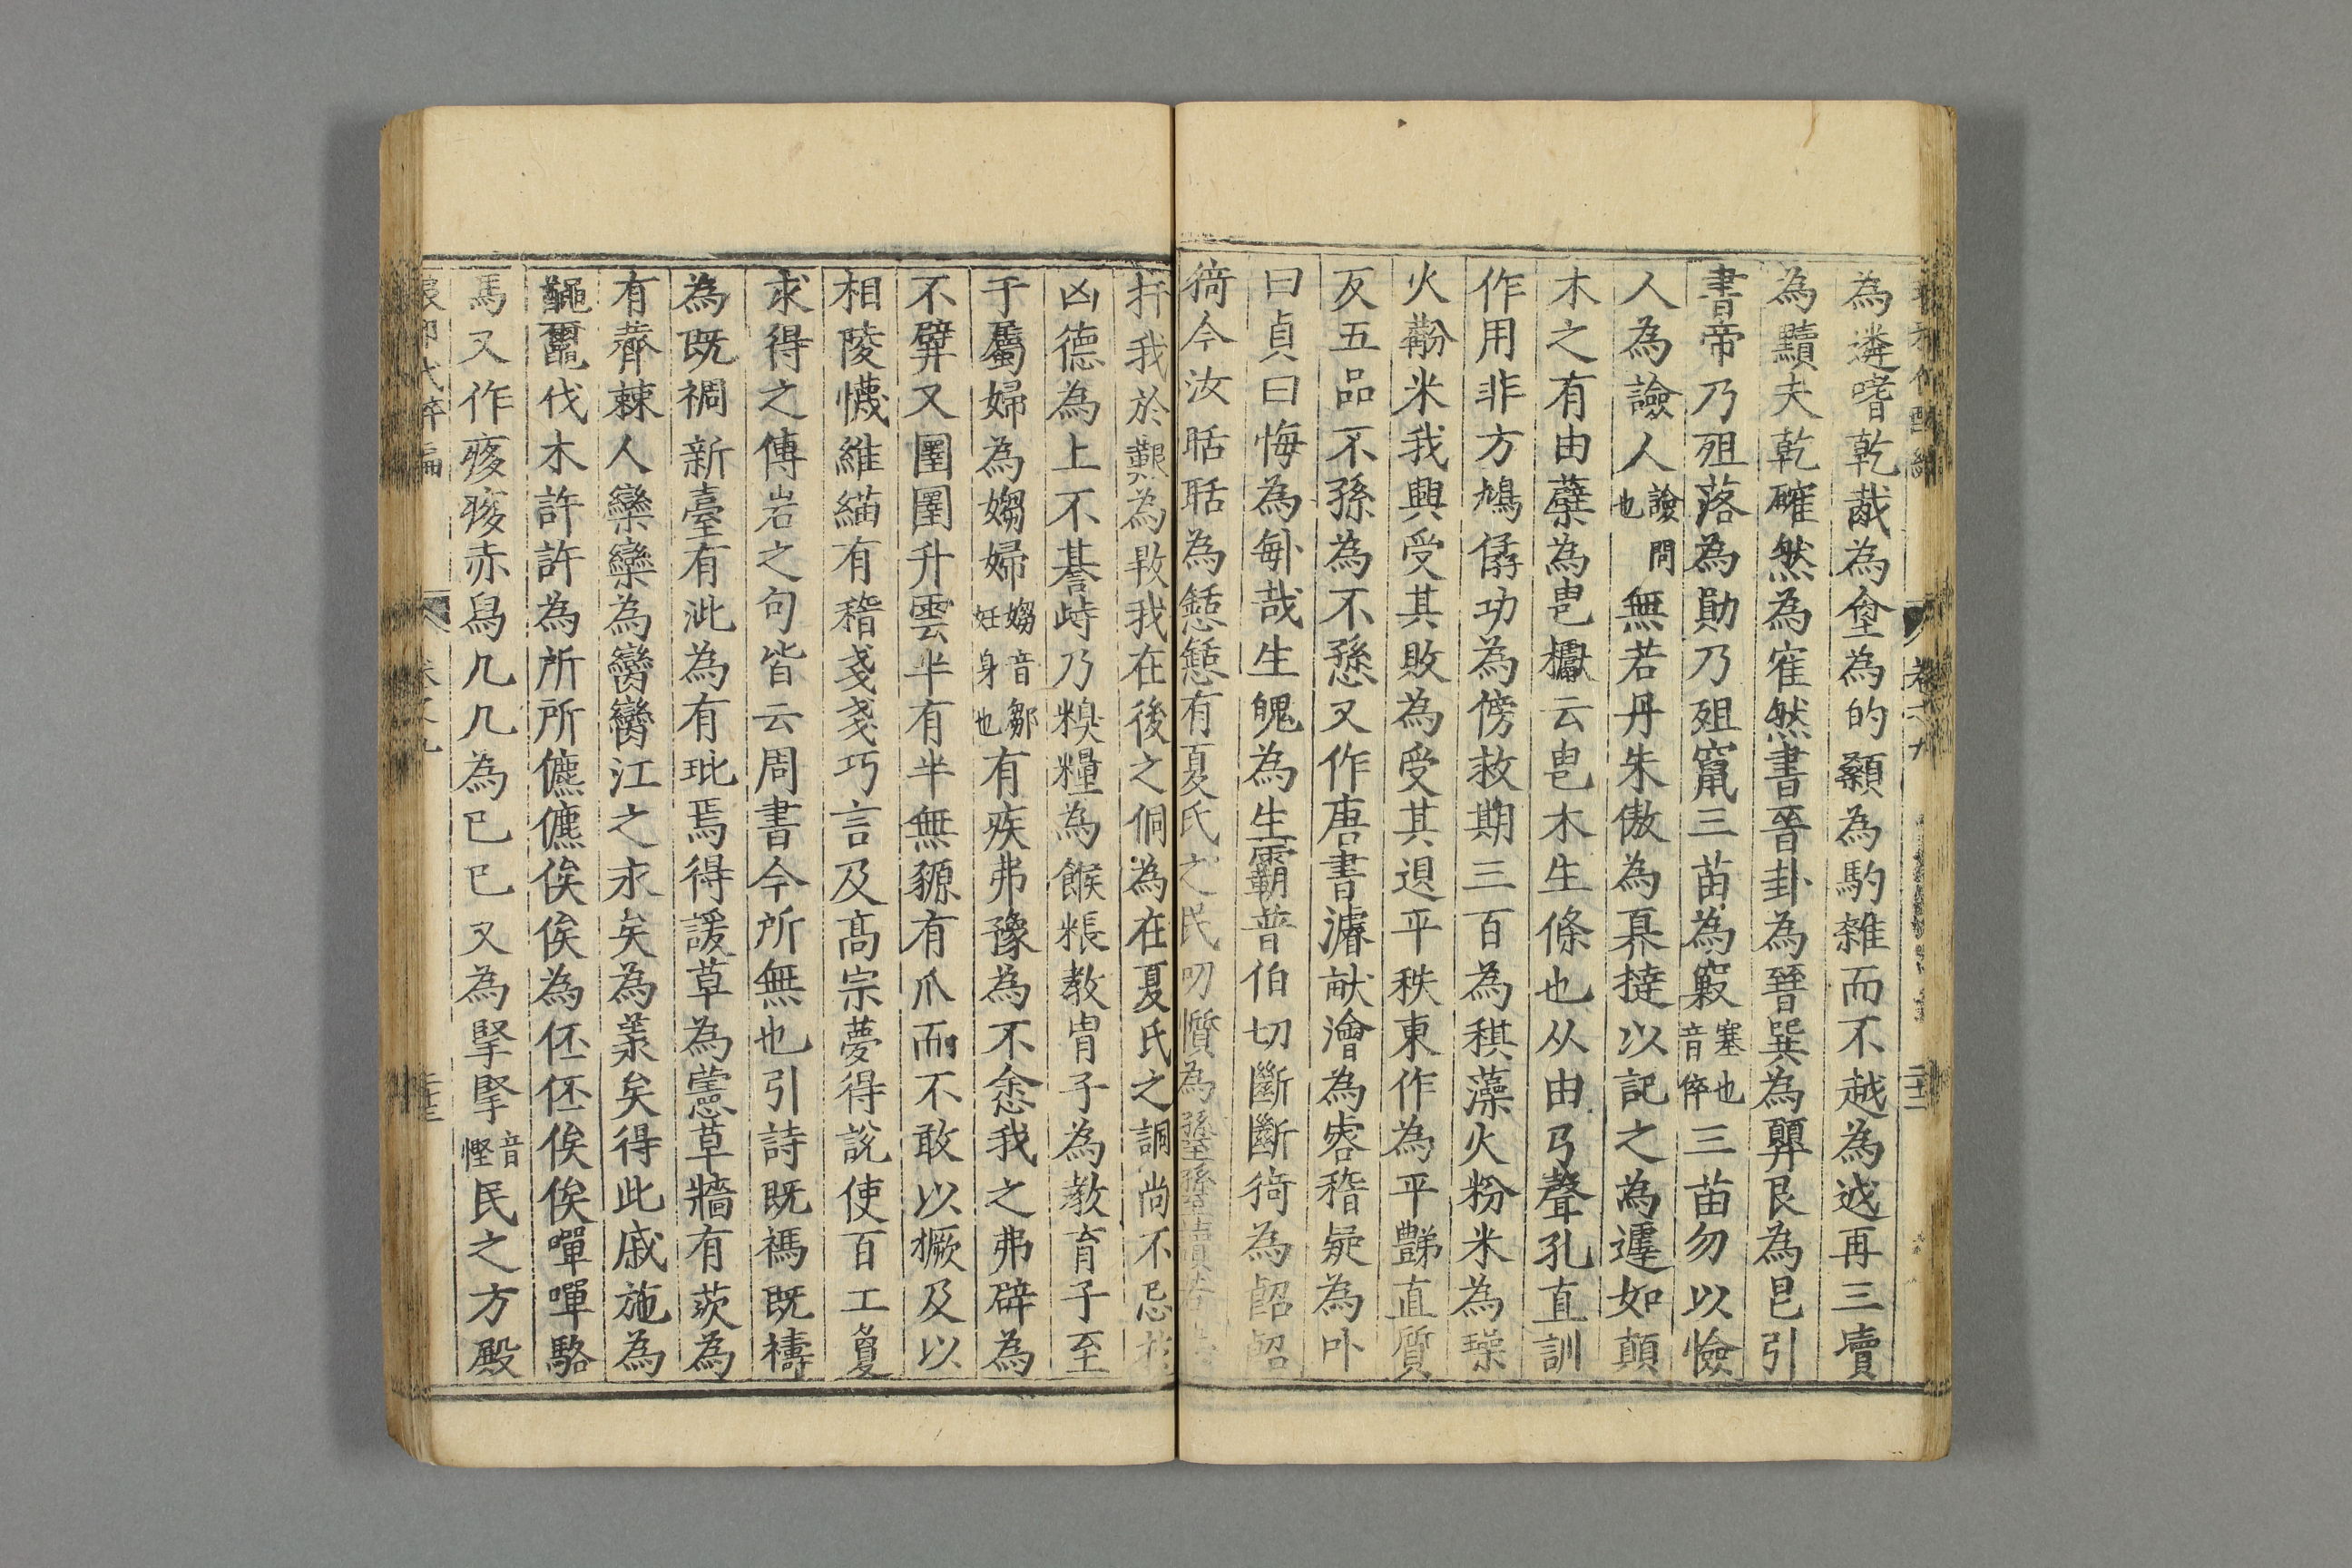 為遴嗜乾胾為㙲為的顙為馰雜而不越為𨒋再三賣
為黷夫乾確然為寉然書晉卦為𣌭巽為顨艮為皀引
書帝乃殂落為勛乃殂竄三苗為竅塞也音倅三苗勿以憸
人為譣人譣問也無若丹朱傲為奡撻以記之為遽如顛
木之有由蘖為甹㰕云甹木生條也从由丂聲孔直訓
作用非方鳩僝功為傍救期三百為稘藻火粉米為璪
火黺米我興受其敗為受其退平秩東作為平豑直質
友五品不孫為不愻又作唐書濬畎澮為容稽疑為卟
曰貞曰悔為𠧩哉生魄為生霸普伯切斷斷猗為㫚㫚
猗今汝聒聒為懖懖有夏氏之民叨懫為
扞我於艱為斁我在後之侗為在夏氏之詷尚不忌
凶德為上不諅峙乃糗糧為餱粻教胄子為教育子至
于屬婦為媰婦媰音鄒妊身也有疾弗豫為不悆我之弗辟為
不擘又圛圛升雲半有半無貙有爪而不敢以撅及以
相陵懱維緢有稽戔戔巧言及高宗夢得說使百工敻
求得之傅岩之句皆云周書今所無也引詩既禡既禱
為既禂新臺有泚為有玼焉得諼草為藼草牆有茨為
有薺棘人欒欒為臠臠江之永矣為羕矣得此戚施為
䵶伐木許許為所所儦儦俟俟為伾伾俟俟嘽嘽駱
馬又作痑痑赤舄几几為己己又為掔掔音慳民之方殿